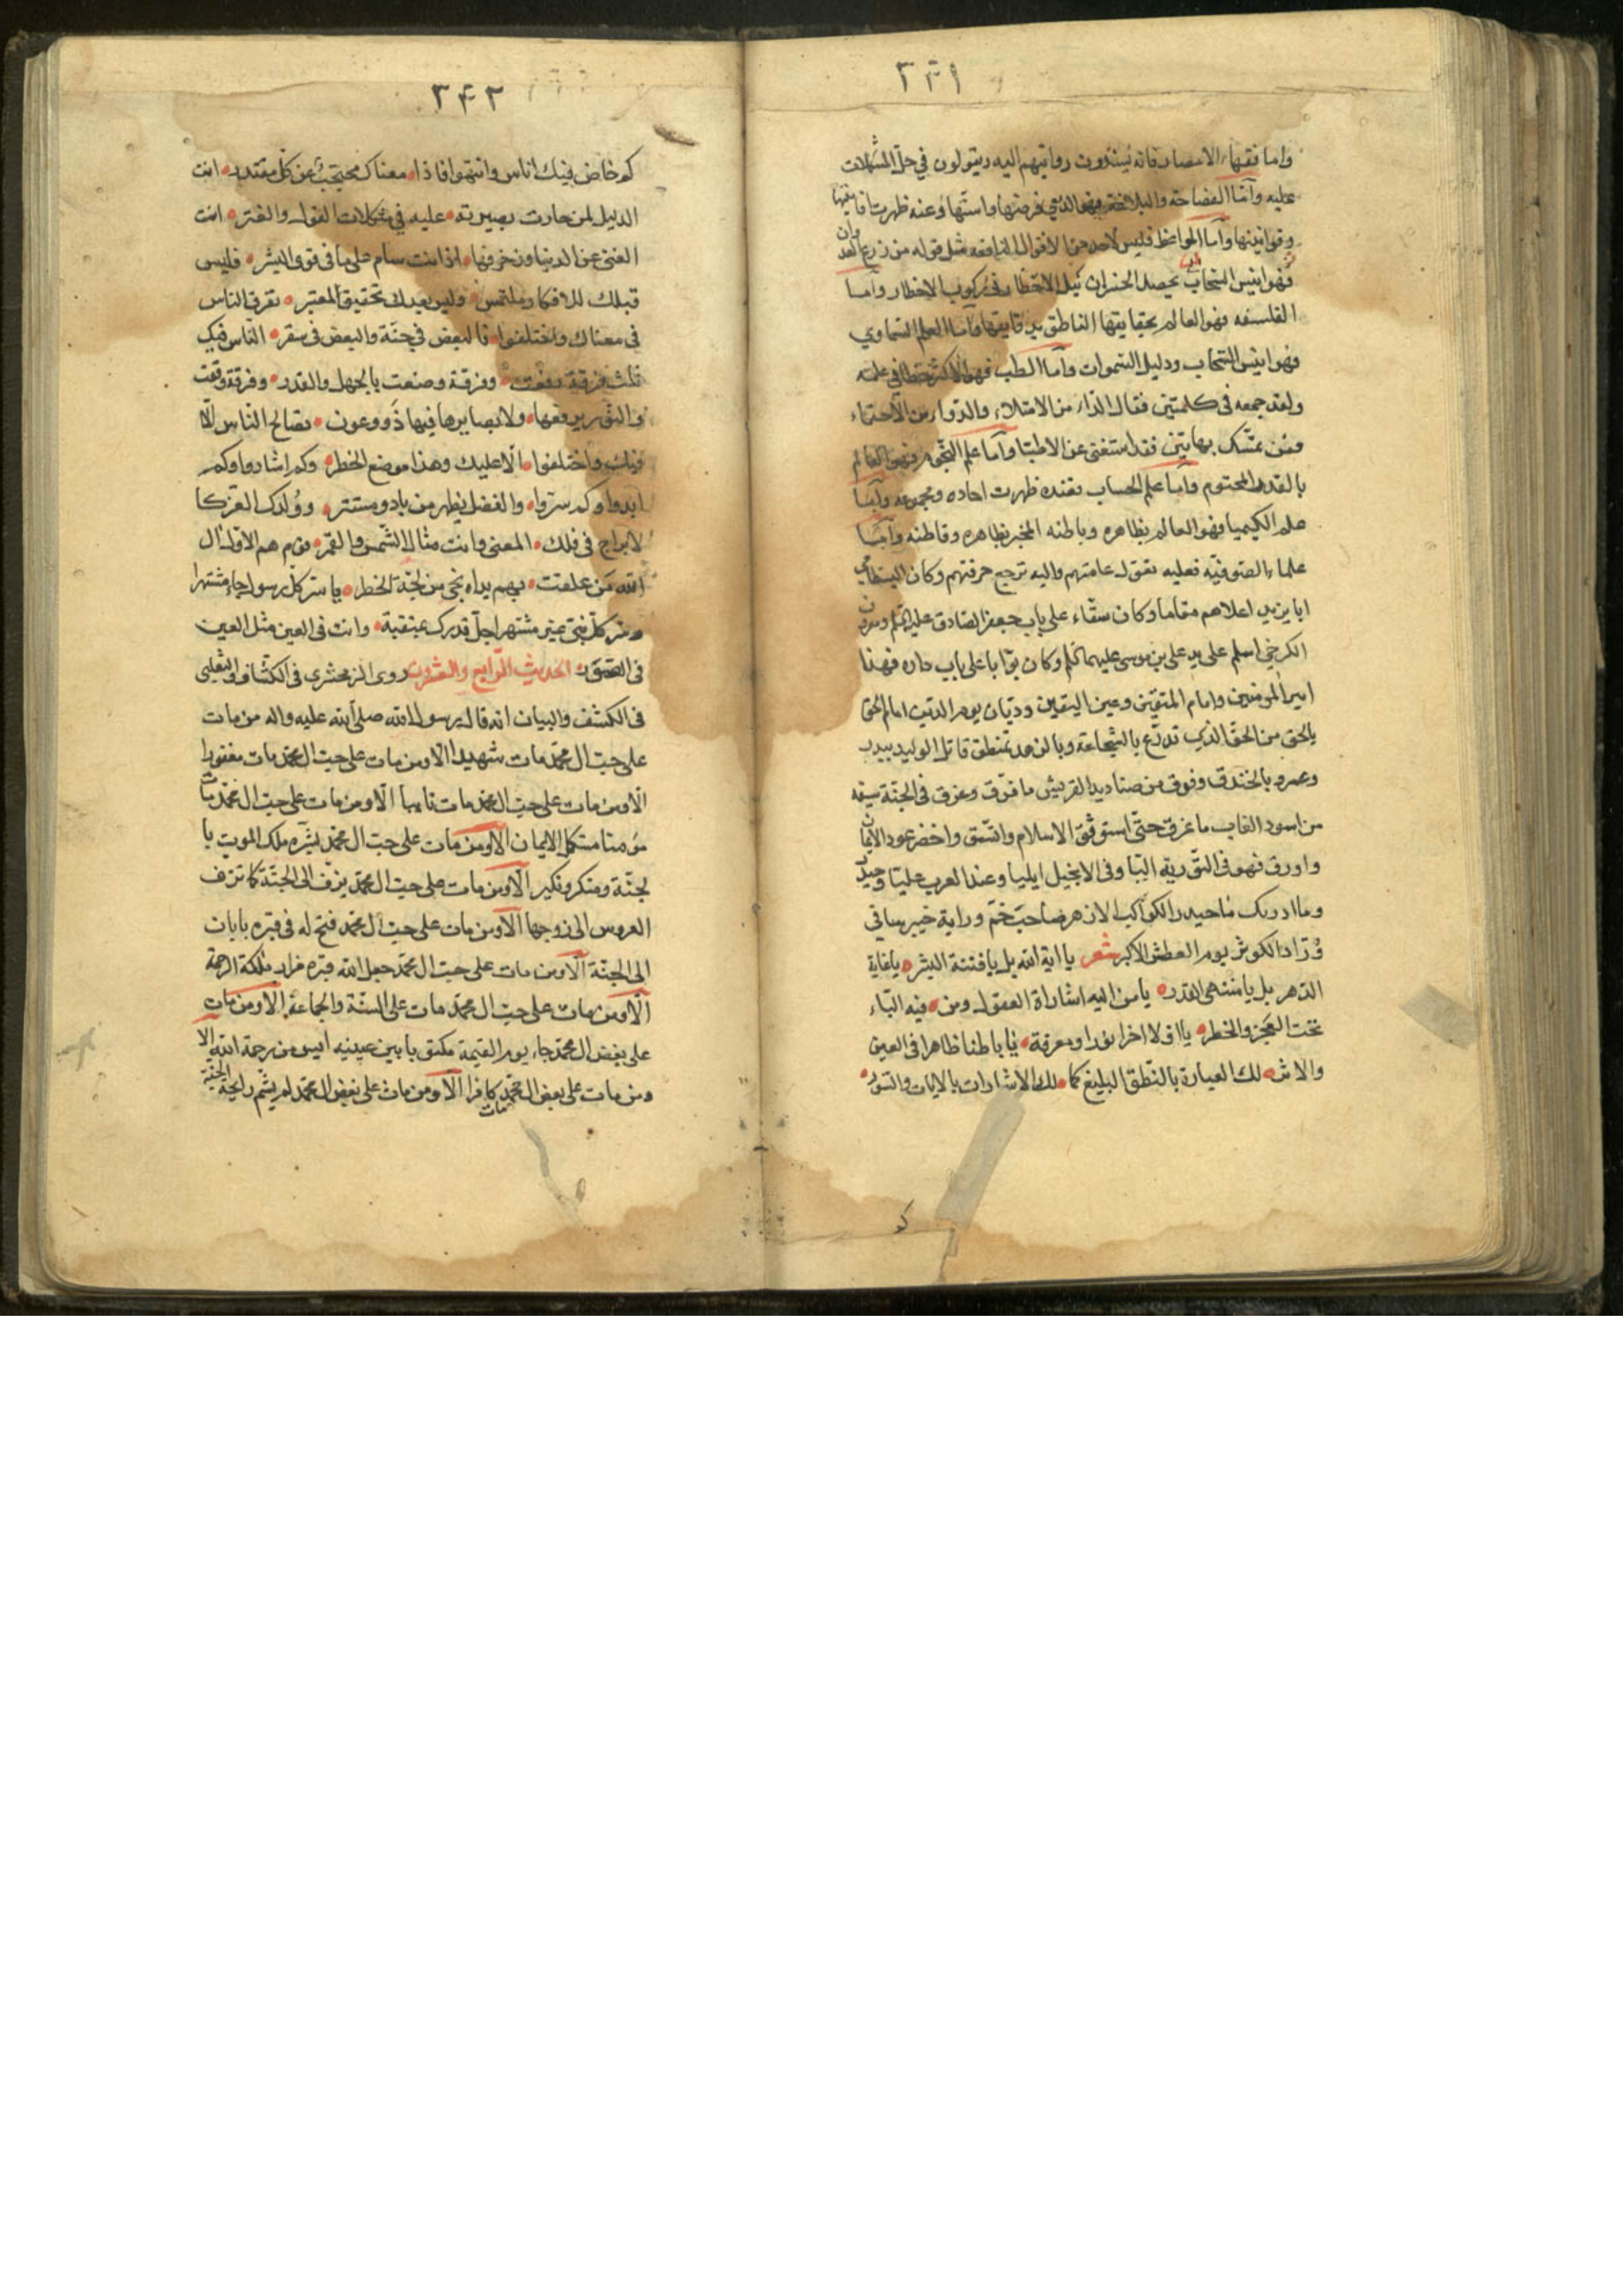 ٣٤١
واما فقهاء الامصار فانه يسندون روايتهم اليه ويتولون في حل المشكلات
عليه وامّا الفصاحة والبلاغة فهو الذي فرضها واسنها وعنه ظهرت
وقوانينها وامّا المواعظ فليس لاحد من الاقوال النافعه مثل قوله من زرع
حصد الخسران نيل الاخطار في ركوب الاخطار وامّا
الفلسفه فهو العالم بحقايقها الناطق بدقايقها وامّا العلم السماوي
فهو انيس السّحاب ودليل السّموات وامّا الطب فهو
ولقد جمعه في كلمتين فقال الدّاء من الامتلاء والدّواء من الاحتماء
ومن تمسّك بهاتين فقد استغنى عن الاطبّا وامّا علم النّجوم فهو العالم
بالقدر المحتوم وامّا علم الحساب فعنده ظهرت احاده ومجموعه وامّا
علم الكيميا فهو العالم بظاهره وباطنه المخبر بظاهره وقاطنه وامّا
علماء الصوفيّه فعليه تقول عامتهم واليه ترجع حرفتهم وكان البسطامي
ابا يزيد اعلاهم مقاما وكان سقّاء على باب جعفر الصادق عليه السّلم
الكرخي اسلم على يد علي بن موسى عليهما السّلم وكان بوّابا على باب داره فهذا
امير المومنين وامام المتقين وعين اليقين وديّان يوم الدين امام الحق
بالحق من الحق الذي تدرّع بالشجاعة وبالزهد تمنطق قاتل الوليد ببدر
وعمرو بالخندق وفوق من صناديد القريش ما فرّق وعرق في الجنّة سيفه
من اسود الغاب ما غرق حتّى استوثق الاسلام واتّسق واخضر عود الايمان
واورق فهو في التّورية اليّا وفي الانجيل ايليا وعند العرب عليّا وحيدر
وما ادريك ما حيدر الكواكب الازهر صاحب خمّ وراية خيبر ساقي
ورّاد الكوثر يوم العطش الاكبر شعر يا اية الله بل يا فتنة البشر يا غاية
الدّهر بل يا منتهى القدر يا من اليه اشاراة العقول ومن فيه البّاء
تحت العجز والخطر يا اوّلا اخرا نورا ومعرفة يا باطنا ظاهرا في العين
والاثر لك العبارة بالنّطق البليغ كما لك الاشارات بالايات والسّور
٣٤٢
كم خاض فيك اناس وانتهوا فاذا معناك محتجب عن كلّ مقتدر انت
الدليل لمن حارت بصيرته عليه في مشكلات القول والفتر انت
الغني عن الدنيا وزخرفها اذ انت سام على ما في قوى البشر فليس
قبلك للافكار ملتمس وليس بعدك تحقيق المعتبر تفرق الناس
في معناك واختلفوا فالبعض في جنّة والبعض في سقر النّاس فيك
ثلث فرقة رفعت وفرقة وضعت بالجهل والقدر وفرقة وقعت
لا النّور يرفعها ولا بصايرها فيها ذوو عون تصالح النّاس الّا
فيك واختلفوا الّا عليك وهذا موضع الخطر وكم اشاروا وكم
ابدوا وكم ستروا والفضل يظهر من باد ومستتر وولدك الغرّ كا
لابراج في فلك المعنى وانت مثال الشّمس والقمر قوم هم الاول ال
الله من علقت بهم يداه نجى من لجّة الخطر يا ستر كل رسول جاء مشتهرا
وسرّ كلّ نبيّ غير مشتهر اجلّ قدرك وانت في العين مثل العين
في الصور الحديث الرّابع والعشرون روى الزمخشري في الكشّاف والثعلبي
في الكشف والبيان انه قال رسول الله صلى الله عليه واله من مات
على حبّ ال محمّد مات شهيدا الا ومن مات على حبّ ال محمّد مات مغفورا
الا ومن مات على حبّ ال محمّد مات تايبا الّا ومن مات على حبّ ال محمّد مات
مومنا مستكمل الايمان الا ومن مات على حبّ ال محمّد بشّره ملك الموت با
لجنّة ومنكر ونكير الّا ومن مات على حبّ ال محمّد يزف الى الجنّة كما تزف
العروس الى زوجها الّا ومن مات على حبّ ال محمّد فتح له في قبره بابان
الى الجنّة الّا ومن مات على حبّ ال محمّد جعل الله قبره مزار ملئكة الرحمة
الّا ومن مات على حبّ ال محمّد مات على السنّة والجماعة الا ومن مات
على بغض ال محمّد جاء يوم القيمة مكتوبا بين عينيه ايس من رحمة الله الا
ومن مات على بغض ال محمّد مات كافرا الّا ومن مات على بغض ال محمّد لم يشم رايحة الجنّة